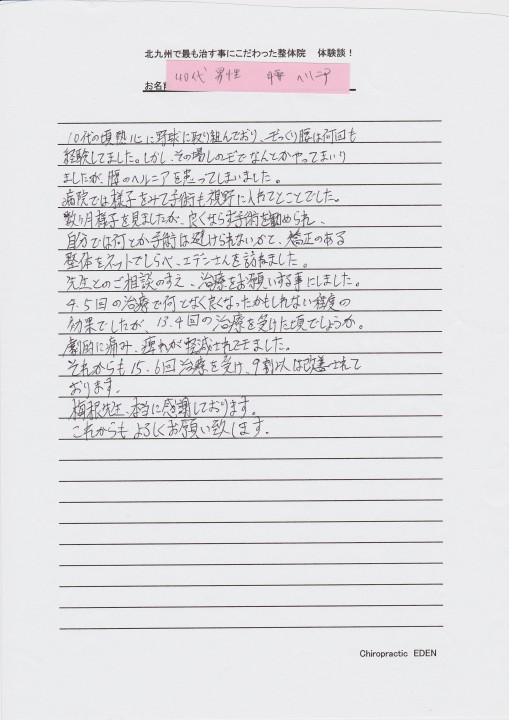 北九州で最も治す事にこだわった整体院 体験談！
お名
40代 男性 腰 ヘルニア
10代の頃熱心に野球に取り組んでおり、ぎっくり腰は何回も
経験してました。しかし、その場しのぎでなんとかやってまいり
ましたが、腰のヘルニアを患ってしまいました。
病院では様子をみて手術も視野に入れてとことでした。
数ヶ月様子を見ましたが、良くならず手術を勧められ、
自分では何とか手術は避けられないかと、矯正のある
整体をネットでしらべ、エデンさんを訪ねました。
先生とのご相談のすえ、治療をお願いする事にしました。
4.5回の治療で何となく良くなったかもしれない程度の
効果でしたが、13.4回の治療を受けた頃でしょうか。
劇的に痛み、痺れが軽減されてきました。
それからも15.6回治療を受け、9割以は改善されて
おります。
梅根先生、本当に感謝しております。
これからもよろしくお願い致します。
Chiropractic EDEN